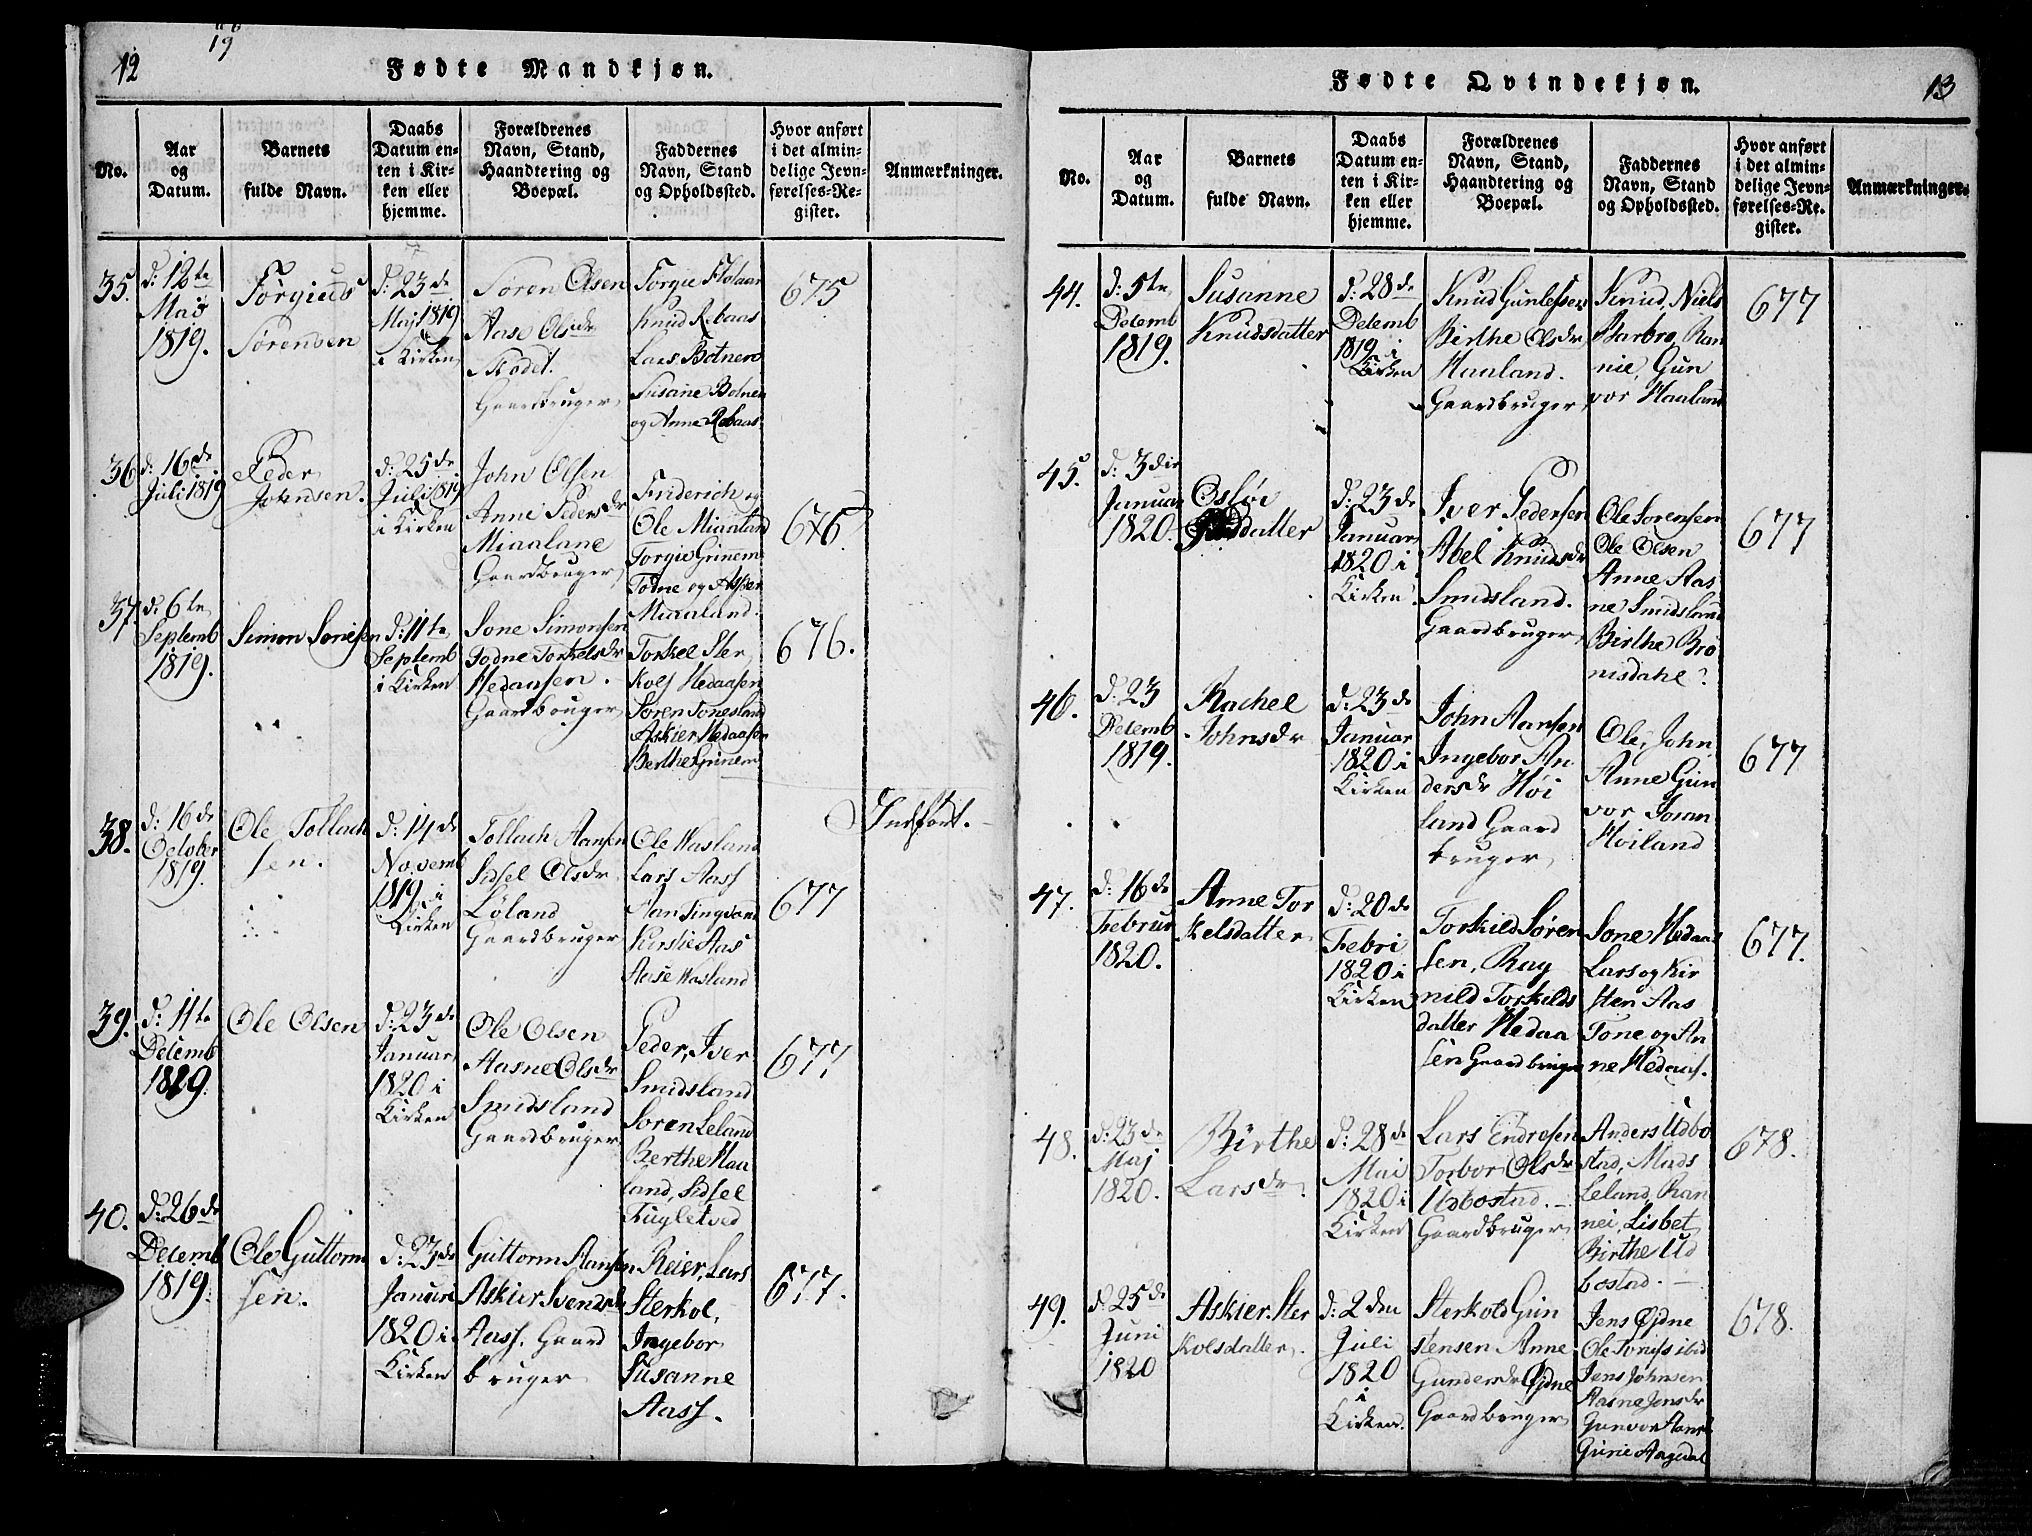 12
19
Fødte Mandkjøn.
No.
Aar
og
Datum.
Barnets
fulde Navn.
Daabs
Datum en-
ten i Kir-
ken eller
hjemme.
Forældrenes
Navn, Stand,
Haandtering og
Boepæl.
Faddernes
Navn, Stand
og Opholdssted.
Hvor anført
i det almin-
delige Jevn-
førelses-Re-
gister.
Anmærkninger.
35.
d: 12te
Mai
1819.
Torgiuus
Sörensen
d: 23de
Maj 1819
i Kirken
Soren Olsen
Aase Olsdr
Gaardbruger
Torgie
Knud Rebaas
Lars Botnen
Susane Botnen
og Anne Rebaas
675
36
d: 16de
Juli 1819
Peder
Johnsen.
d: 25de
Juli 1819
i Kirken
John Olsen
Anne Pedersdr
Miaaland
Gaardbruger
Friderich og
Ole Miaaland
Torgie Grinem
Todne og Assier
Miaaland.
676.
37
d: 6te
Septemb
1819.
Simon Sonesen
d: 11te
Septemb
i Kirken
Sone Simonsen
Todne Torkelsdr
Hedaasen.
Gaardbruger
Torkel Ster
kolf Hedaasen
Soren Tonesland
Askier Hedaasen
Berthe Grinem
676.
38.
d: 16de
October
1819.
Ole Tollach
sen.
d: 14de
Novemb
1819 i
Kirken
Tollach Aansen
Sidsel Olsdr
Løland
Gaardbruger
Ole Wasland
Lars Aass
Aan Lingvand
Kirstie Aas
Aase Wasland
677
Indført.
39.
d: 11te
Decemb
1819.
Ole Olsen
d: 23de
Januar
1820 i
Kirken
Ole Olsen
Aasne Olsdr
Smidsland
Gaardbruger
Peder, Iver
Smidsland
Soren Leland
Berthe Haa
land, Sidsel
Fugletved
677
40.
d: 26de
Decemb
1819.
Ole Guttorm
sen.
d: 23de
Januri
1820 i
Kirken
Guttorm Aansen
Askier Svendsdr
Aass. Gaard
bruger
Reier, Lars
Sterkol,
Ingebor
Susanne
Aass.
677.
Fødte Qvindekjøn.
13
No.
Aar
og
Datum.
Barnets
fulde Navn.
Daabs
Datum en-
ten i Kir-
ken eller
hjemme.
Forældrenes
Navn, Stand,
Haandtering og
Boepæl.
Faddernes
Navn, Stand
og Opholdssted.
Hvor anført
i det almin-
delige Jevn-
førelses-Re-
gister.
Anmærkninger.
44.
d: 5te
Decemb
1819.
Susanne
Knudsdatter
d: 28de
Decemb
1819 i
Kirken
Knud Gunlefsen
Birthe Olsdr
Haaland.
Gaardbruger
Knud, Niels
Barbro, Ran
nie, Gun
vor Haaland
677
45.
d: 3die
Januar
1820.
Osløi
datter
d: 23de
Januar
1820 i
Kirken
Iver Pedersen
Abel Knudsdr
Smidsland.
Gaardbruger
Ole Sorensen
Ole Olsen
Anne Aas
ne Smidsland
Birthe Bro
nisdahl.
677
46.
d: 23
Decemb
1819.
Rachel
Johnsdr
d: 23de
Januar
1820 i
Kirken
John Aansen
Ingebor An
dersdr Høi
land Gaard
bruger
Ole, John
Anne Gun
vor Joran
Høiland
677
47.
d: 16de
Februar
1820.
Anne Tor
kelsdatter
d: 20de
Febri
1820 i
Kirken
Torkild Søren
sen, Rag
nild Torkilds
datter Hedaa
sen Gaardbruger
Sone Hedaas
Lars og Kir
sten Aas
Tone og An
ne Hedaas.
677.
48.
d: 23de
Maj
1820.
Birthe
Larsdr.
d: 28de
Mai
1820 i
Kirken
Lars Endresen
Torbor Olsdr
Udbostad.
Gaardbruger
Anders Udbo
stad, Mads
Leland, Ran
nei, Lisbet
Birthe Ud
bostad.
678.
49.
d: 25de
Juni
1820
Askier Ster
kolsdatter.
d: 2den
Juli
1820
i
Kirken.
Sterkold Gun
stensen Anne
Gundersdr Øjdne
Gaardbruger
Jens Øjdne
Ole Tonises ibid
Jens Johnsen
Aasne Jensdr
Gunvor
Gurie Aagedal
678.